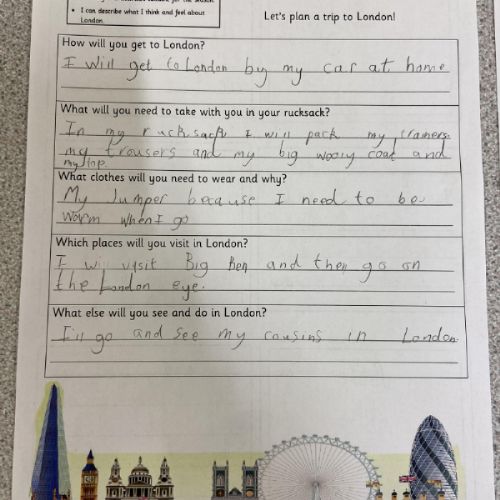 • I can describe what I think and feel about
London.
Let's plan a trip to London!
How will you get to London?
I will get to London by my car at home
What will you need to take with you in your rucksack?
In my rucksack I will pack my trainers
my trousers and my big wooly coat and
my top.
What clothes will you need to wear and why?
My Jumper because I need to be
warm when I go
Which places will you visit in London?
I will visit Big Ben and then go on
the London eye.
What else will you see and do in London?
I'll go and see my cousins in London.